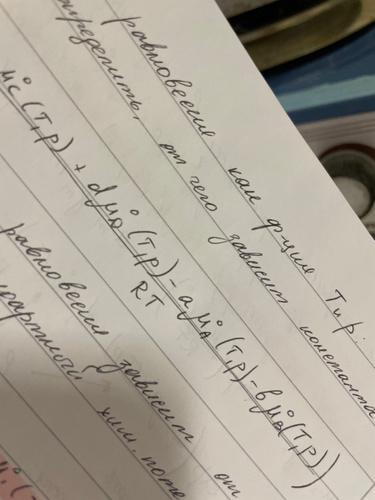 равновесия как функц. T и p.
определить, от чего зависит константа
μc°(T,p) + dμD°(T,p) - aμA°(T,p) - bμB°(T,p))
RT
равновесия зависит от
хим. поте